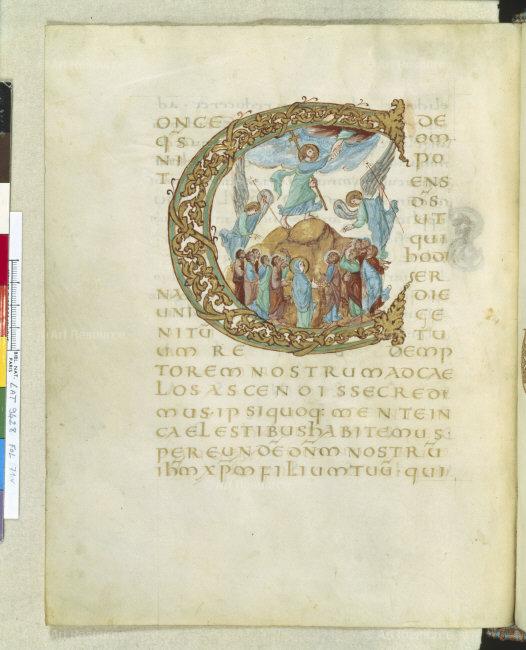 CONCE DE
q̅s om
NI PO
T ENS
d̅s
UT
qui
hodi
ER
NA DIE
UNI GE
NITŪ TU
UM RE DEMP
TOREM NOSTRUM AD CAE
LOS ASCENDISSE CREDI
MUS· IPSI QUOQ: MENTE IN
CAELESTIBUS HABITEMUS
PER EUNDĒ DN̄M NOSTRŪ
IH̄M XP̄M FILIUM TUŪ· QUI
BIBL. NAT.
PARIS
LAT 9428 FOL 71v
Art Resource